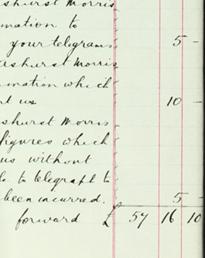 shurst Morris
mation to
your telegram 5 -
shurst Morris
mation which
nt us 10 -
shurst Morris
figures which
us without
to telegraph to
been incurred. 5 -
forward £ 57 16 10